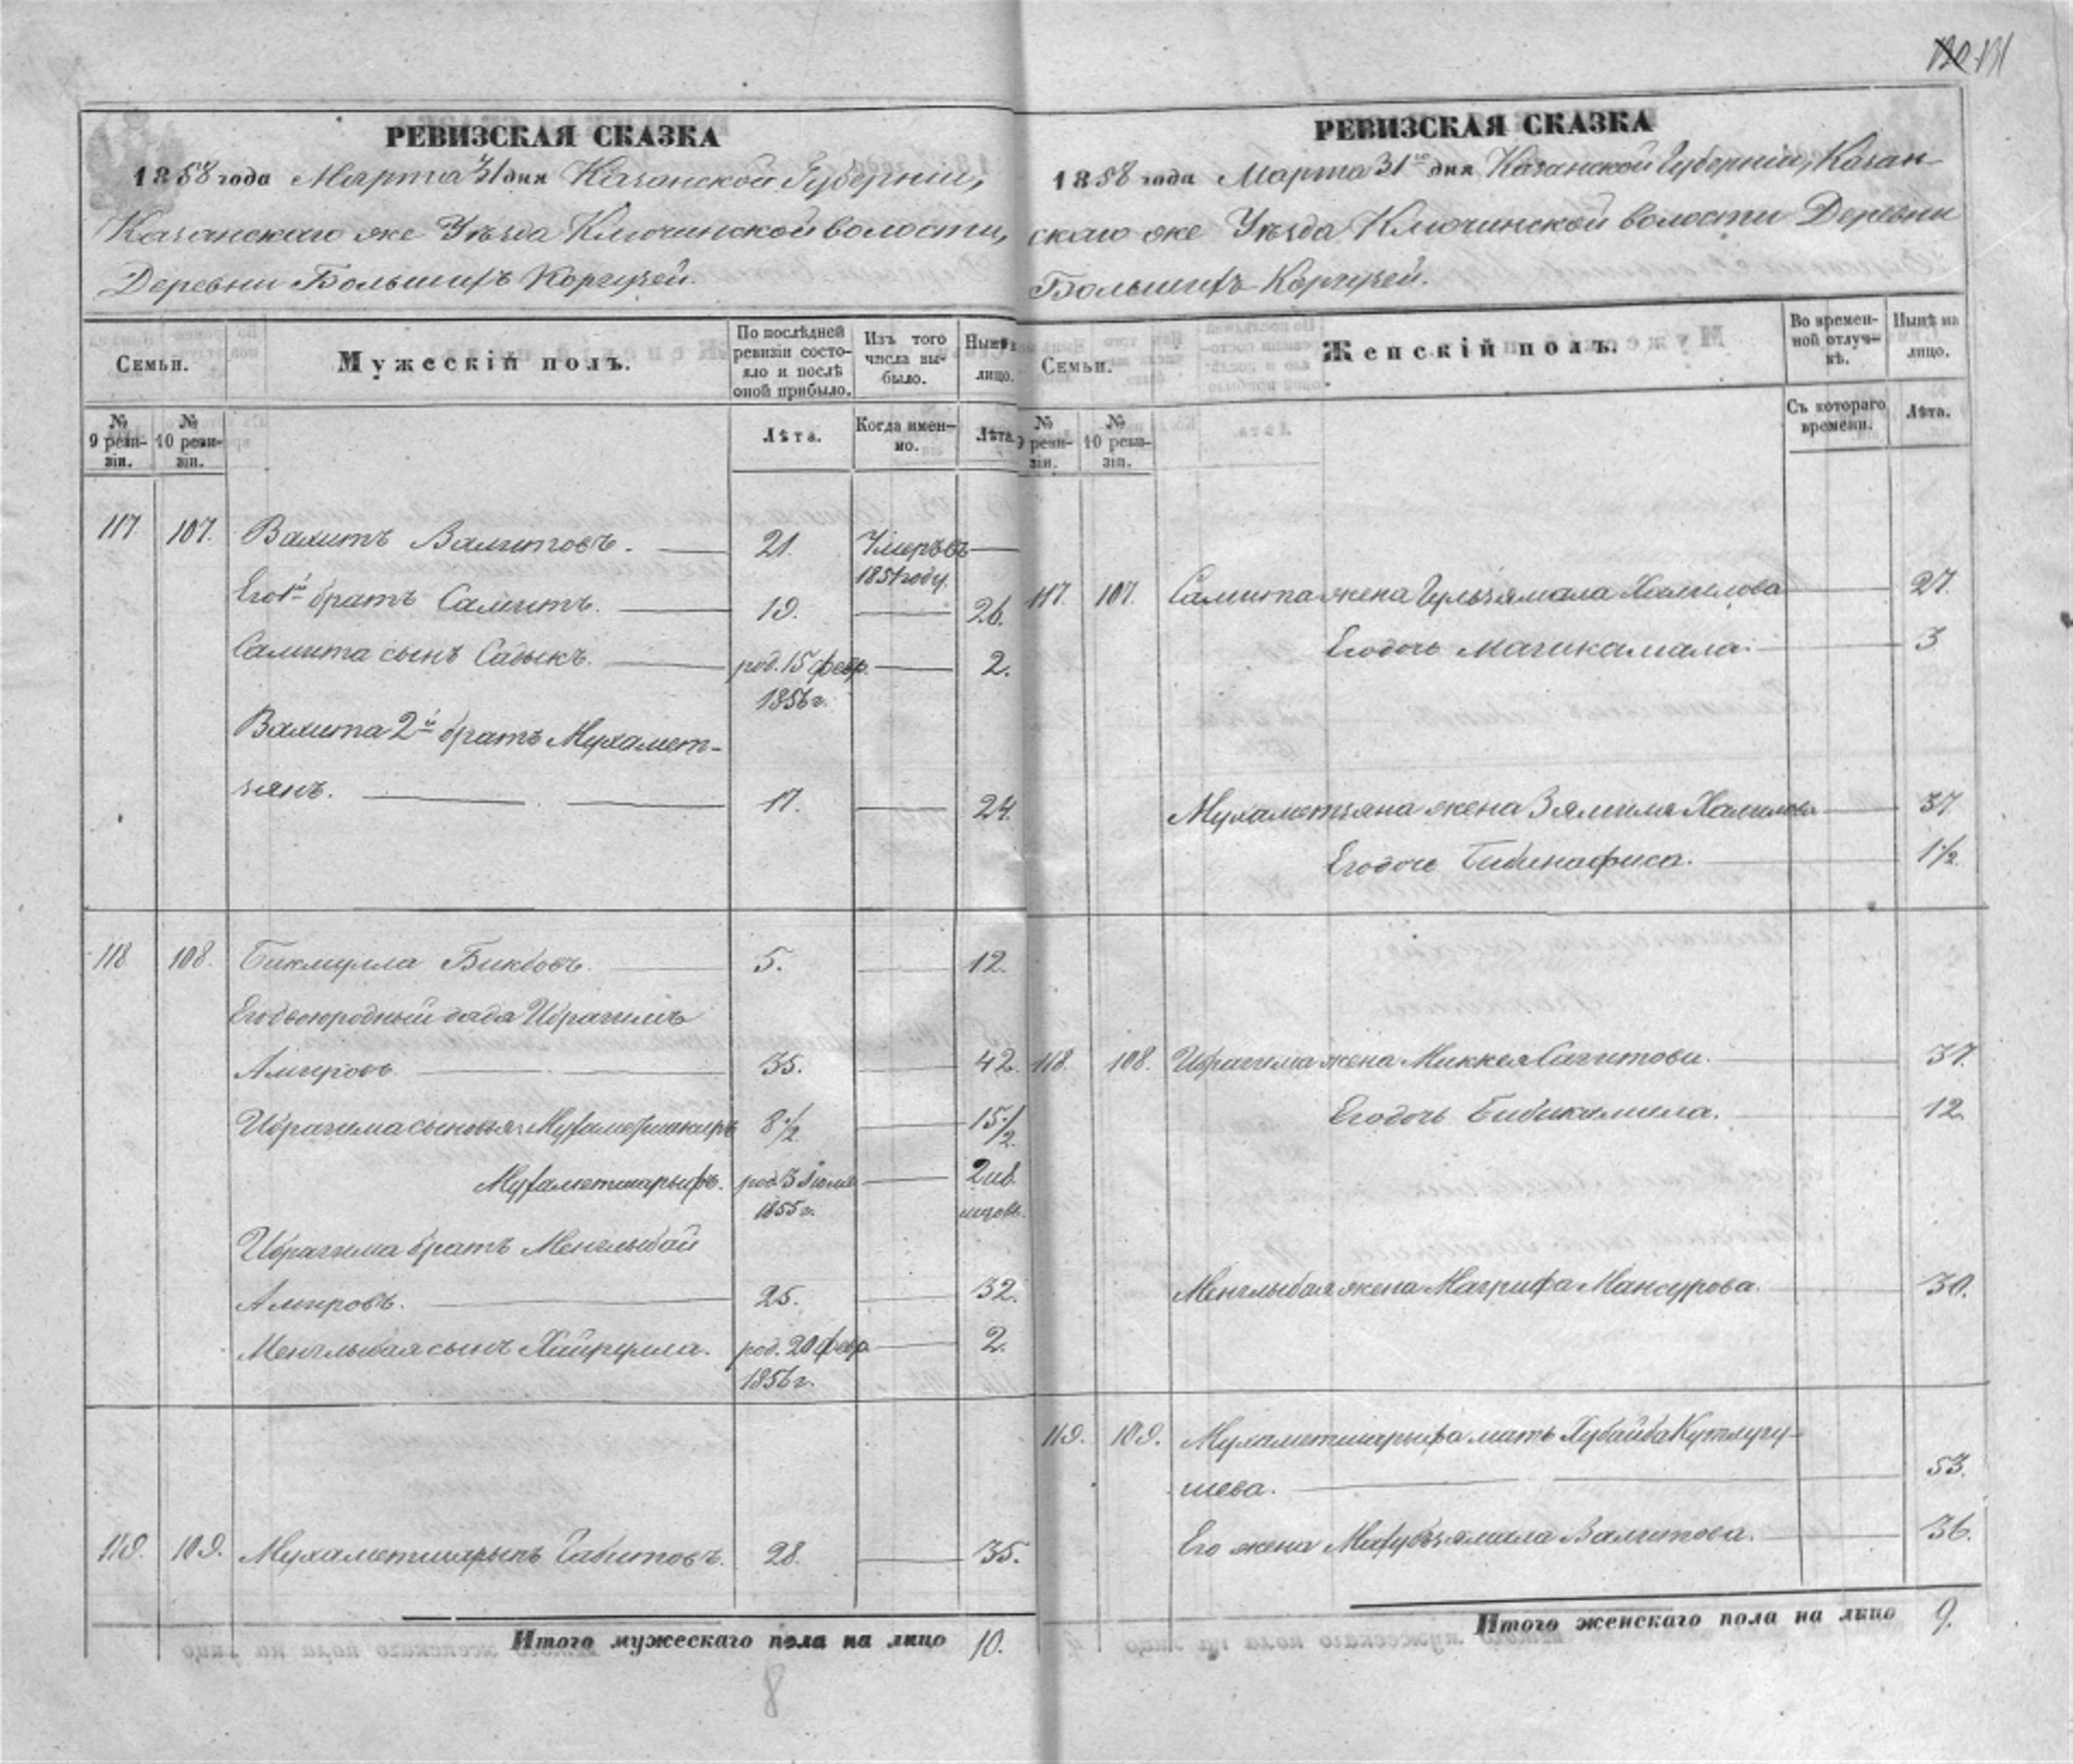 120. 131
РЕВИЗСКАЯ СКАЗКА
1858 года Марта 31 дня Казанской Губерніи,
Казанскаго же Уѣзда Ключинской волости,
Деревни Большихъ Коргузей.
Семьи.
Мужескій полъ.
По послѣдней ревизіи состояло и послѣ оной прибыло.
Изъ того числа выбыло.
Нынѣ на лицо.
№ 9 ревизіи.
№ 10 ревизіи.
Лѣта.
Когда именно.
Лѣта.
117 107. Валитъ Валитовъ. 21. Умеръ въ 1851 году.
Его 1й братъ Самитъ. 19. 26.
Самита сынъ Садыкъ. род. 15 февр. 1856 г. 2.
Валита 2й братъ Мухамет-
зянъ. 17. 24.
118 108. Бикмулла Бикбовъ. 5. 12.
Его двоюродный дядя Ибрагимъ
Амировъ 35. 42.
Ибрагима сыновья: Мухаметшакиръ 8 1/2 15 1/2.
Мухаметшарыфъ. род. 3 Іюля 1855 г. 2 и 8 мѣсов.
Ибрагима братъ Менглыбай
Амировъ. 25. 32.
Менглыбая сынъ Хайрулла. род. 20 февр. 1856 г. 2.
119. 109. Мухаметшарыпъ Габитовъ. 28. 35.
Итого мужескаго пола на лицо 10.
8
РЕВИЗСКАЯ СКАЗКА
1858 года Марта 31го дня Казанской Губерніи, Казан-
скаго же Уѣзда Ключинской волости Деревни
Большихъ Коргузей.
Семьи.
Женскій полъ.
Во временной отлучкѣ.
Нынѣ на лицо.
№ 9 ревизіи.
№ 10 ревизіи.
Съ котораго времени.
Лѣта.
117. 107. Самита жена Гульзямала Халилова 27.
Его дочь Магикамала. 3
Мухаметзяна жена Зямиля Халилова 37.
Его дочь Бибинафиса. 1 1/2.
118. 108. Ибрагима жена Миккея Сагитова. 37.
Его дочь Бибикамила. 12.
Менглыбая жена Магрифа Мансурова. 30.
119. 109. Мухаметшарыфа мать Хубайба Кутлугу-
шева. 53.
Его жена Махубзямила Валитова. 36.
Итого женскаго пола на лицо 9.